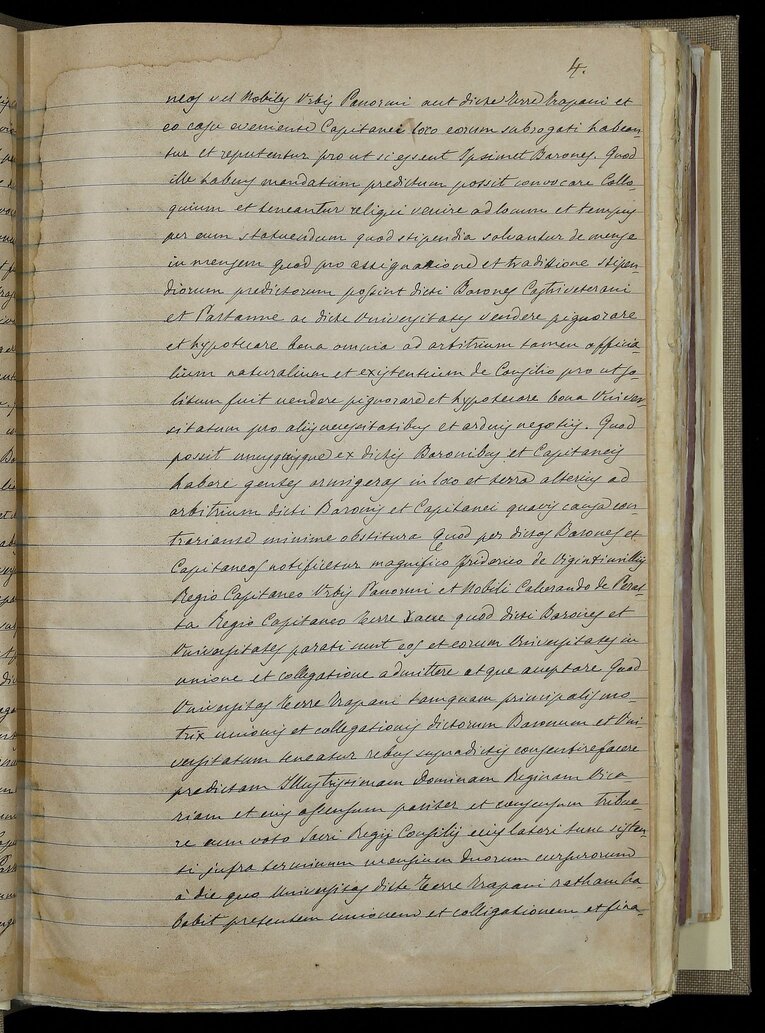 4.
neos vel Nobiles Urbis Panormi aut dicte Terre Trapani et
eo casu evemente Capitanei loco eorum subrogati habean-
tur et reputentur pro ut si essent Ipsimet Barones. Quod
ille habens mandatum predictum possit convocare Collo
quium et teneantur religui venire ad locum et tempus
per eum statuendum quod stipendia solvantur de mense
in mensem quod pro assignatione et traditione stipen-
diorum predictorum possint dicti Barones Castriveterani
et Partanne ac dicte Universitates vendere pignorare
et hypotecare bona omnia ad arbitrium tamen officia-
lium naturalium et existentium de Consilio pro ut so-
litum fuit vendere pignorare et hypotecare bona Univer-
sitatum pro aliis necessitatibus et arduis negotiis. Quod
possit unusquisque ex dictis Baronibus et Capitaneis
habere gentes armigeras in loco et terra alterius ad
arbitrium dicti Baronis et Capitanei quavis causa con
trarianse minime obstitura Quod per dictos Barones et
Capitaneos notificetur magnifico Friderico de Vigintimilliis
Regio Capitaneo Urbis Panormi et Nobili Calcerando de Peral-
ta Regio Capitaneo Terre Xacce quod dicti Barones et
Universitates parati sunt eos et eorum Universitates in
unione et collegatione admittere atque aceptare Quod
Universitas Terre Trapani tamquam principalis mo-
trix unionis et collegationis dictorum Baronum et Uni
versitatum teneatur rebus supradictis consentire facere
predictam Illustrissimam Dominam Reginam Vica
riam et eius assensum pariter et consensum tribue-
re cum voto Sacri Regii Consilii eius lateri tunc sisten-
ti infra terminum mensium duorum cursurorum
à die quo Universitas dicte Terre Trapani ratham ha
bebit presentem unionem et colligationem et fina-